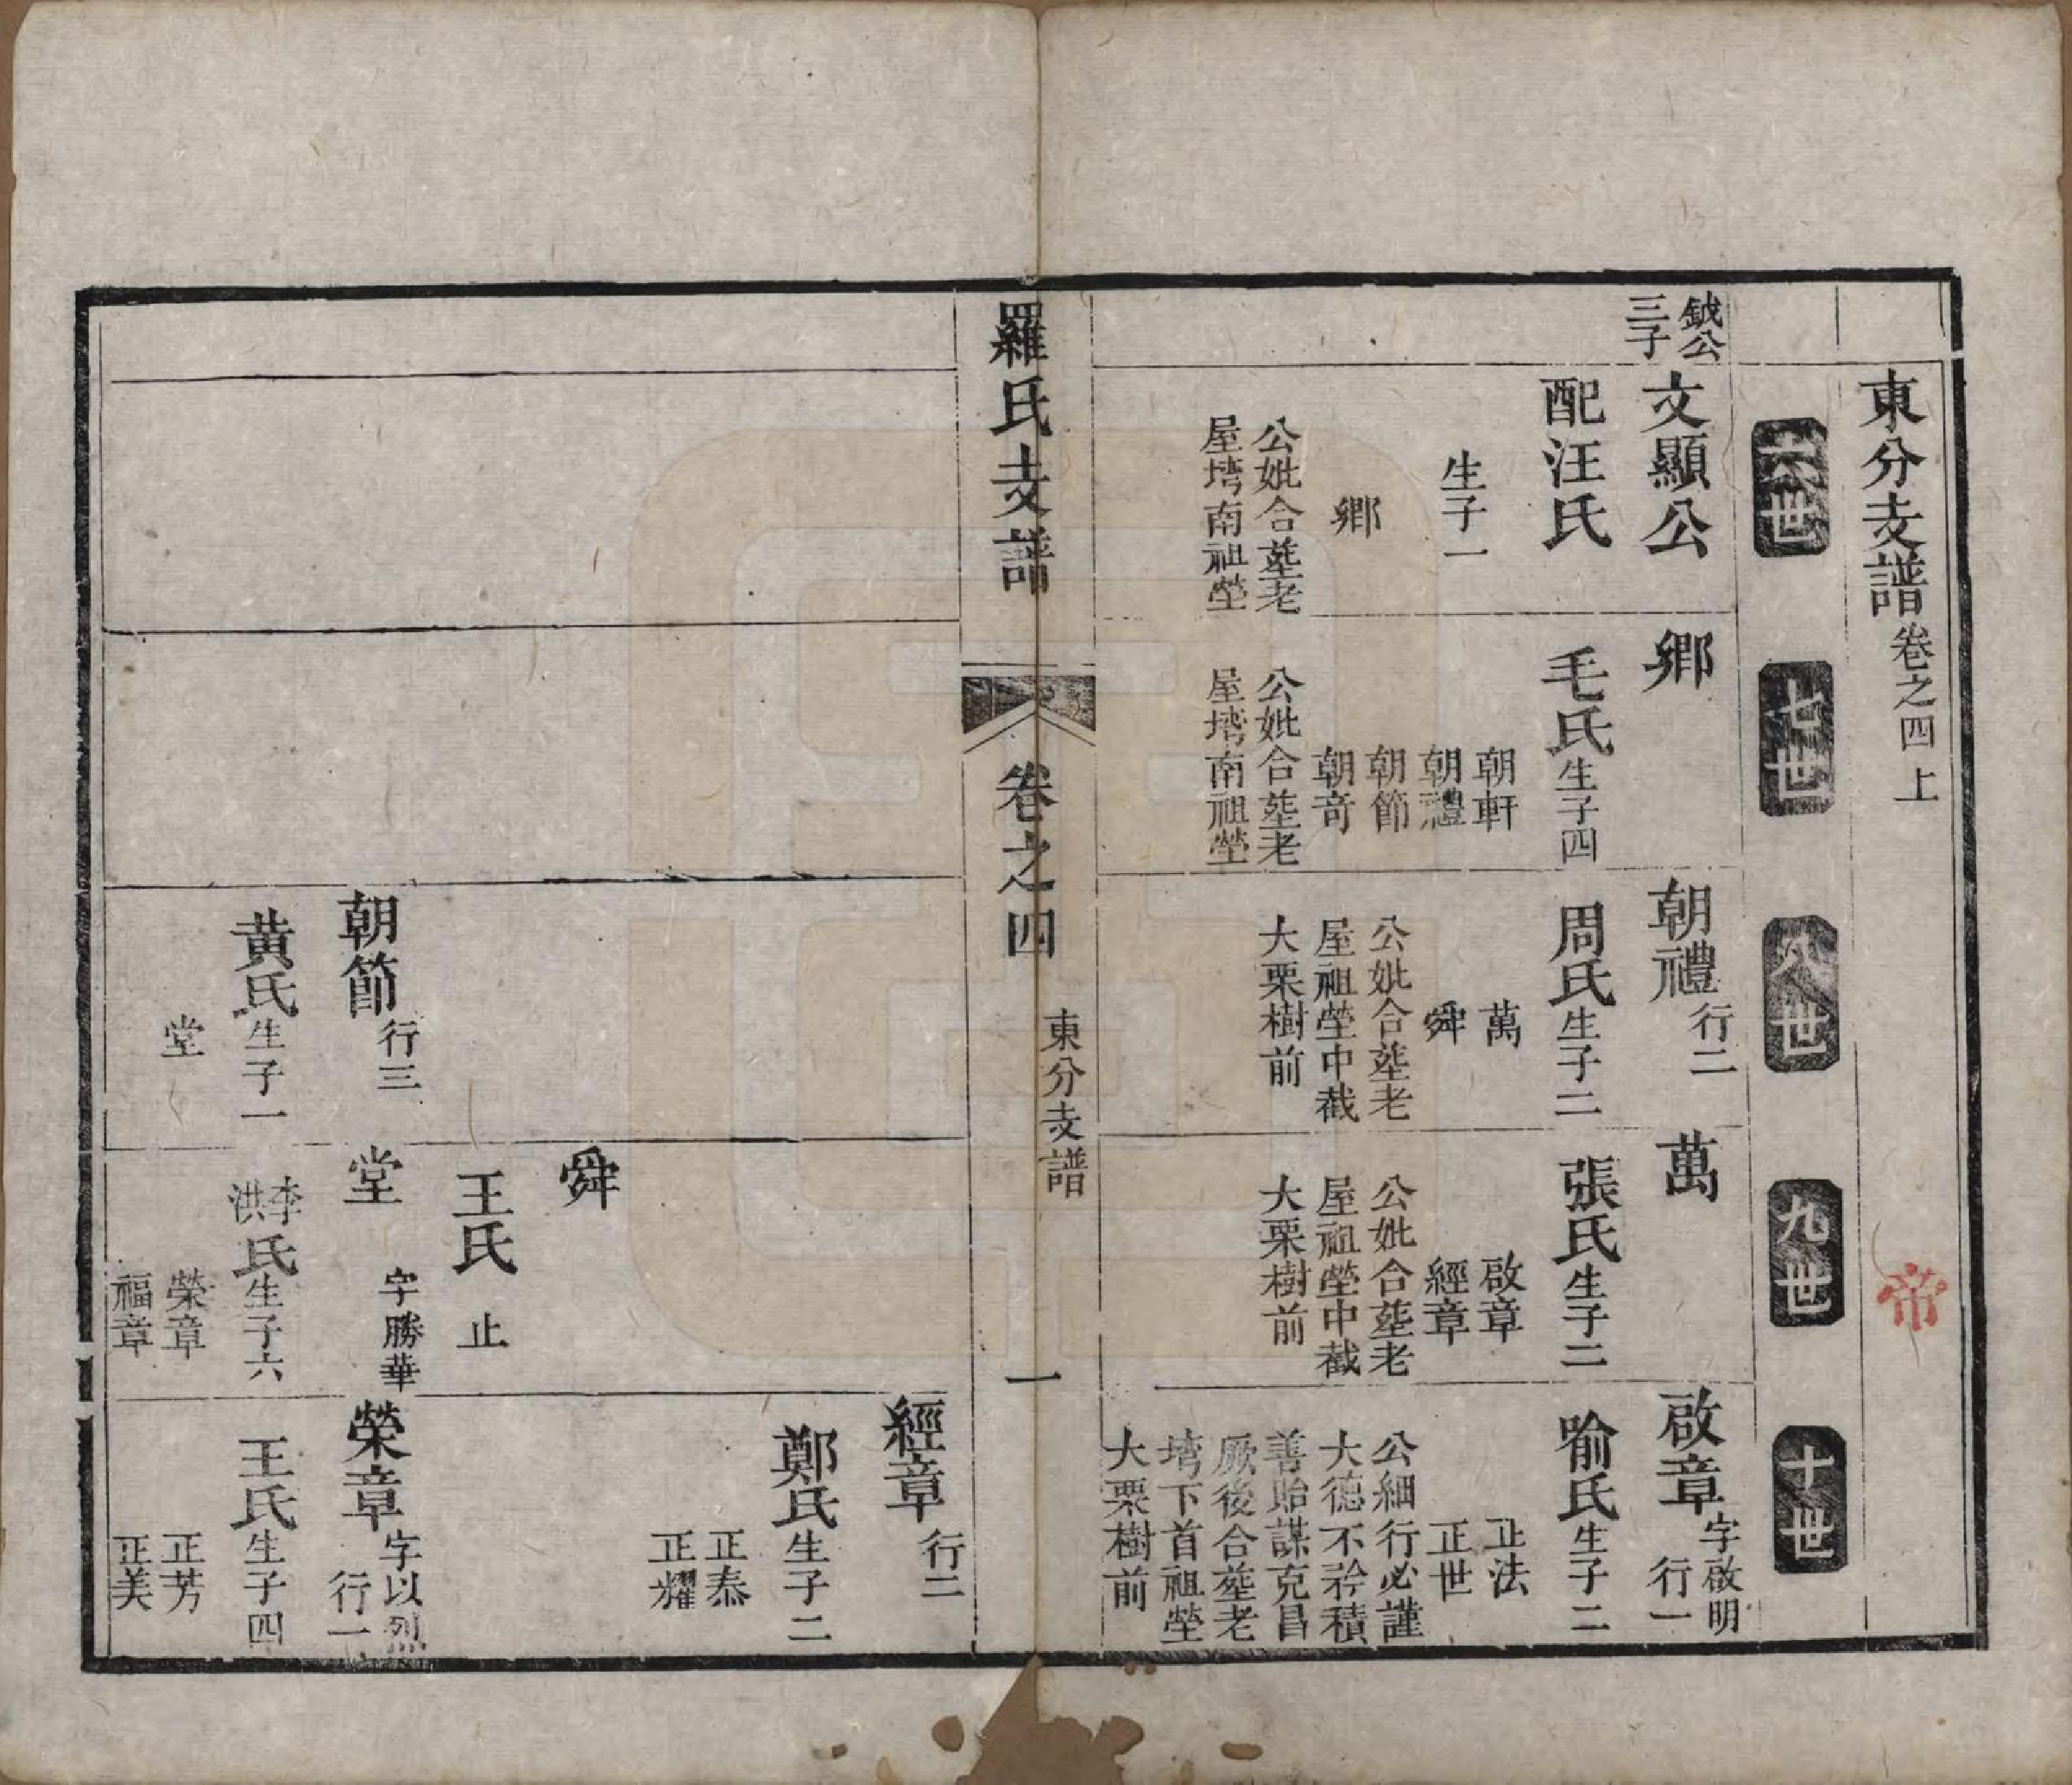 東分支譜卷之四上
帝
六世
七世
八世
九世
十世
鉞公
三子
文顯公
配汪氏
生子一
鄉
公妣合塟老
屋塆南祖塋
鄉
毛氏生子四
朝軒
朝禮
朝節
朝竒
公妣合塟老
屋塆南祖塋
朝禮行二
周氏生子二
萬
舜
公妣合塟老
屋祖塋中截
大栗樹前
萬
張氏生子二
啟章
經章
公妣合塟老
屋祖塋中截
大栗樹前
啟章字啟明
行一
喻氏生子二
正法
正世
公細行必謹
大德不矜積
善貽謀克昌
厥後合塟老
塆下首祖塋
大栗樹前
羅氏支譜
卷之四
東分支譜
一
朝節行三
黃氏生子一
堂
舜
王氏 止
堂字勝華
李
洪氏生子六
榮章
福章
經章行二
鄭氏生子二
正泰
正耀
榮章字以烈
行一
王氏生子四
正芳
正美